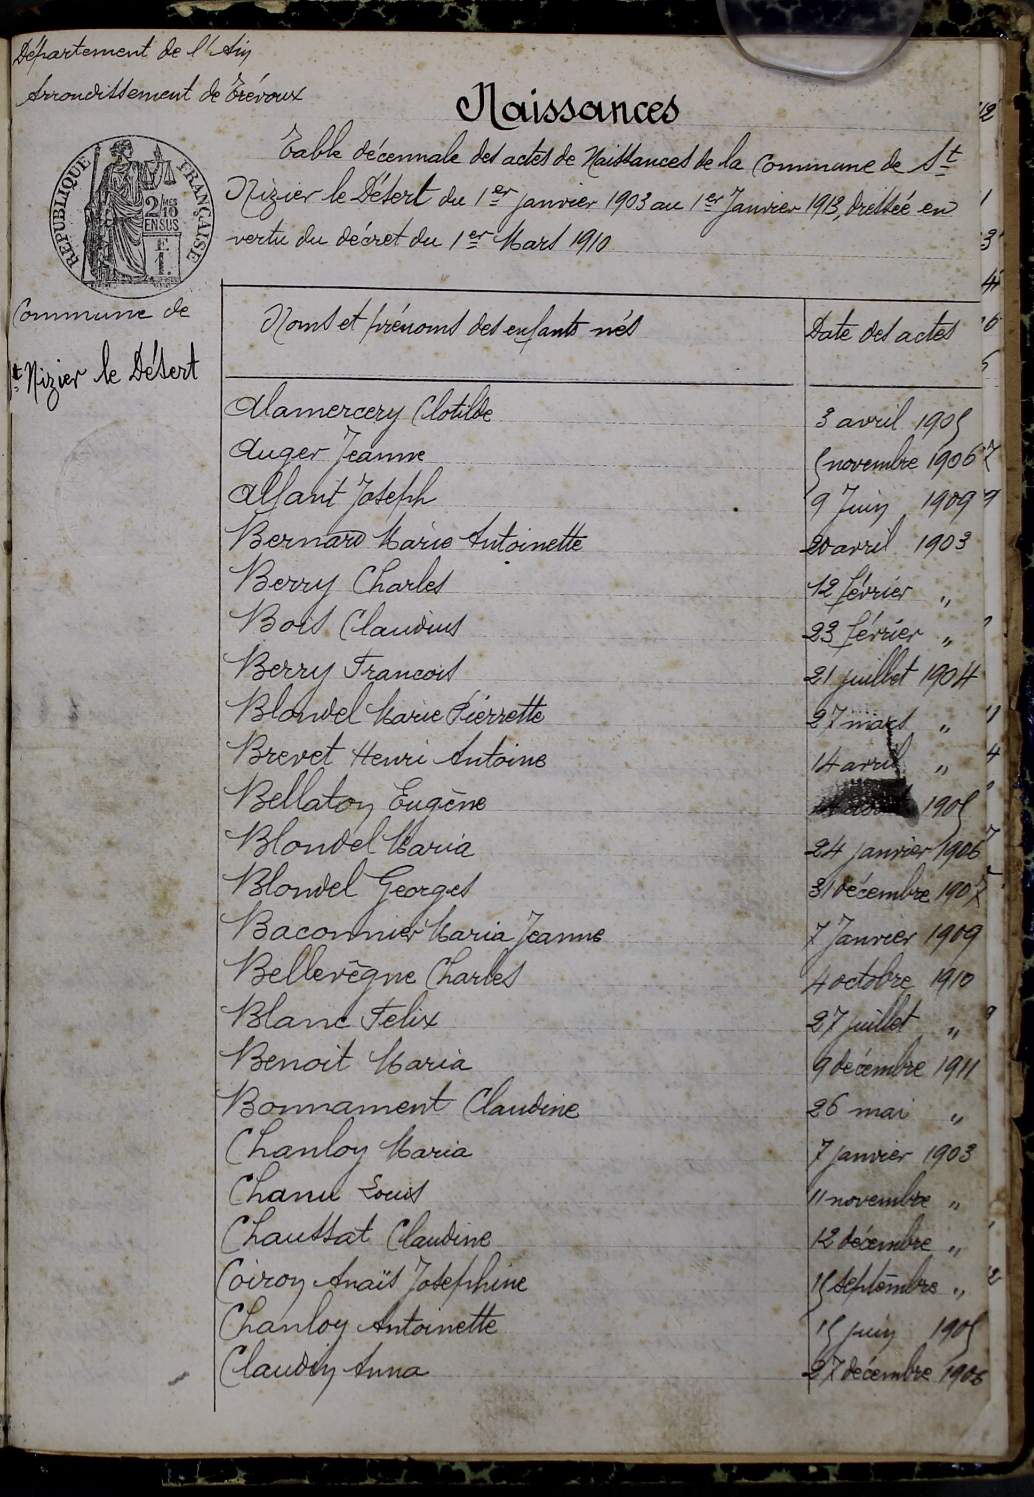 Département de l'Ain
Arrondissement de Trévoux
Naissances
Table décennale des actes de Naissances de la Commune de St
Nizier le Désert du 1er janvier 1903 au 1er Janvier 1913, dressée en
vertu du décret du 1er Mars 1910
RÉPUBLIQUE FRANÇAISE
2/10
EN SUS
Commune de
St Nizier le Désert
Noms et prénoms des enfants nés Date des actes
Alamercery Clotilde 3 avril 1905
Auger Jeanne 5 novembre 1906
Allant Joseph 9 Juin 1909
Bernard Marie Antoinette 20 avril 1903
Berry Charles 12 février "
Bois Claudius 23 février "
Berry Francois 21 juillet 1904
Blondel Marie Pierrette 27 mars "
Brevet Henri Antoine 14 avril "
Bellaton Eugène 1905
Blondel Maria 24 janvier 1906
Blondel Georges 31 décembre 1907
Baconnier Maria Jeanne 7 Janvier 1909
Bellevègne Charles 4 octobre 1910
Blanc Felix 27 juillet "
Benoit Maria 9 décembre 1911
Bonnament Claudine 26 mai "
Chanloy Maria 7 janvier 1903
Chanu Louis 11 novembre "
Chaussat Claudine 12 décembre "
Coiron Anaïs Josephine 15 septembre "
Chanloy Antoinette 15 juin 1905
Claudin Anna 27 décembre 1906